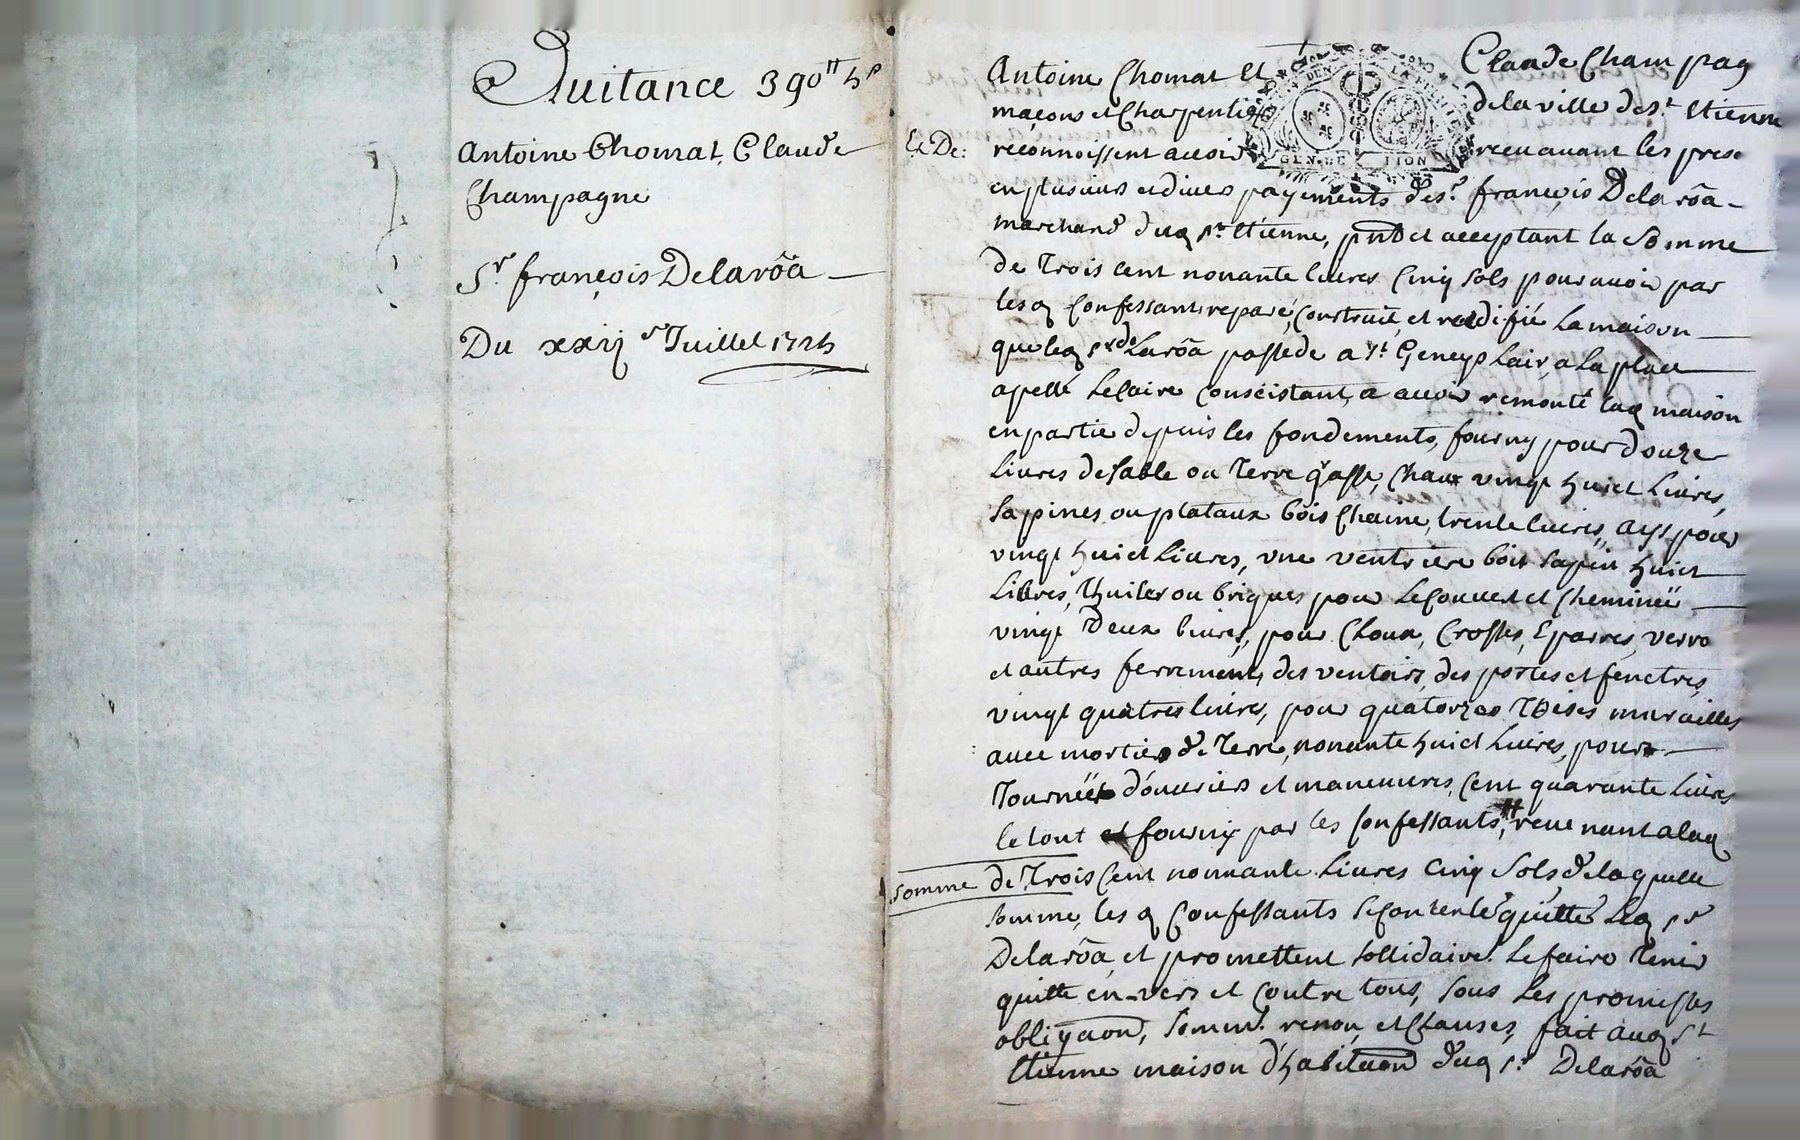 Quitance 390tt 5s
Antoine Chomat, Claude
Champagne
Sr. françois Delarôa
Du xxij e Juillet 1725
Antoine Chomat Et Claude Champag
maçons et Charpentie de la ville de st. Etienne
Ex De: reconnoissent auoir receu auant les prese
en plusieurs et diuers payements de sr. françois Dela rôa
marchand dud st. Etienne, pnt et acceptant la Somme
de Trois cent nonante liures Cinq sols pour auoir par
lesd Confessants reparé, Construit, et reedifié La maison
que led sr de Larôa possede a st. Geneys Lair, a La place
apellé Lelaire Conscistant, a auoir remonté lad maison
en partie depuis les fondements, fourny pour douze
Liures de sable ou Terre grasse, Chaux vingt huict Liures,
sappines ou plataux bois Chaine, trente liures, ays pour
vingt huict Liures, vne ventriere bois sapin huict
Liures, Thuiles ou briques pour Le Couuert et Cheminëe
vingt Deux liures, pour Cloux, Crosses, Eparres, verro
et autres ferrements des ventoirs, des portes et fenetres
vingt quatres liures, pour quatorzes Thoises murailles
auec mortier de Terre, nonante huict Liures, pour
Journëes d'ouuriers et maneuures, Cent quarante Liures
le tout fourny par les Confessants, reuenant a lad
somme de Trois Cent nonnante Liures Cinq Sols de laquelle
somme, les d Confessants se Contente quitte Led sr
Delarôa, et promettent sollidaire. Le faire Tenir
quitte en-vers et Contre tous, sous Les promesses
obligaon, soum. renon, et Clauses, fait aud st
Etienne maison d'habitaon dud sr. Delarôa
GEN DE TION